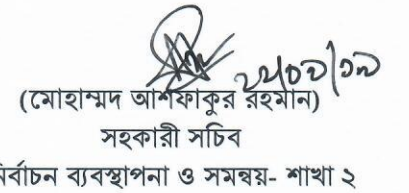 (মোহাম্মদ আশফাকুর রহমান)
সহকারী সচিব
নির্বাচন ব্যবস্থাপনা ও সমন্বয়- শাখা ২